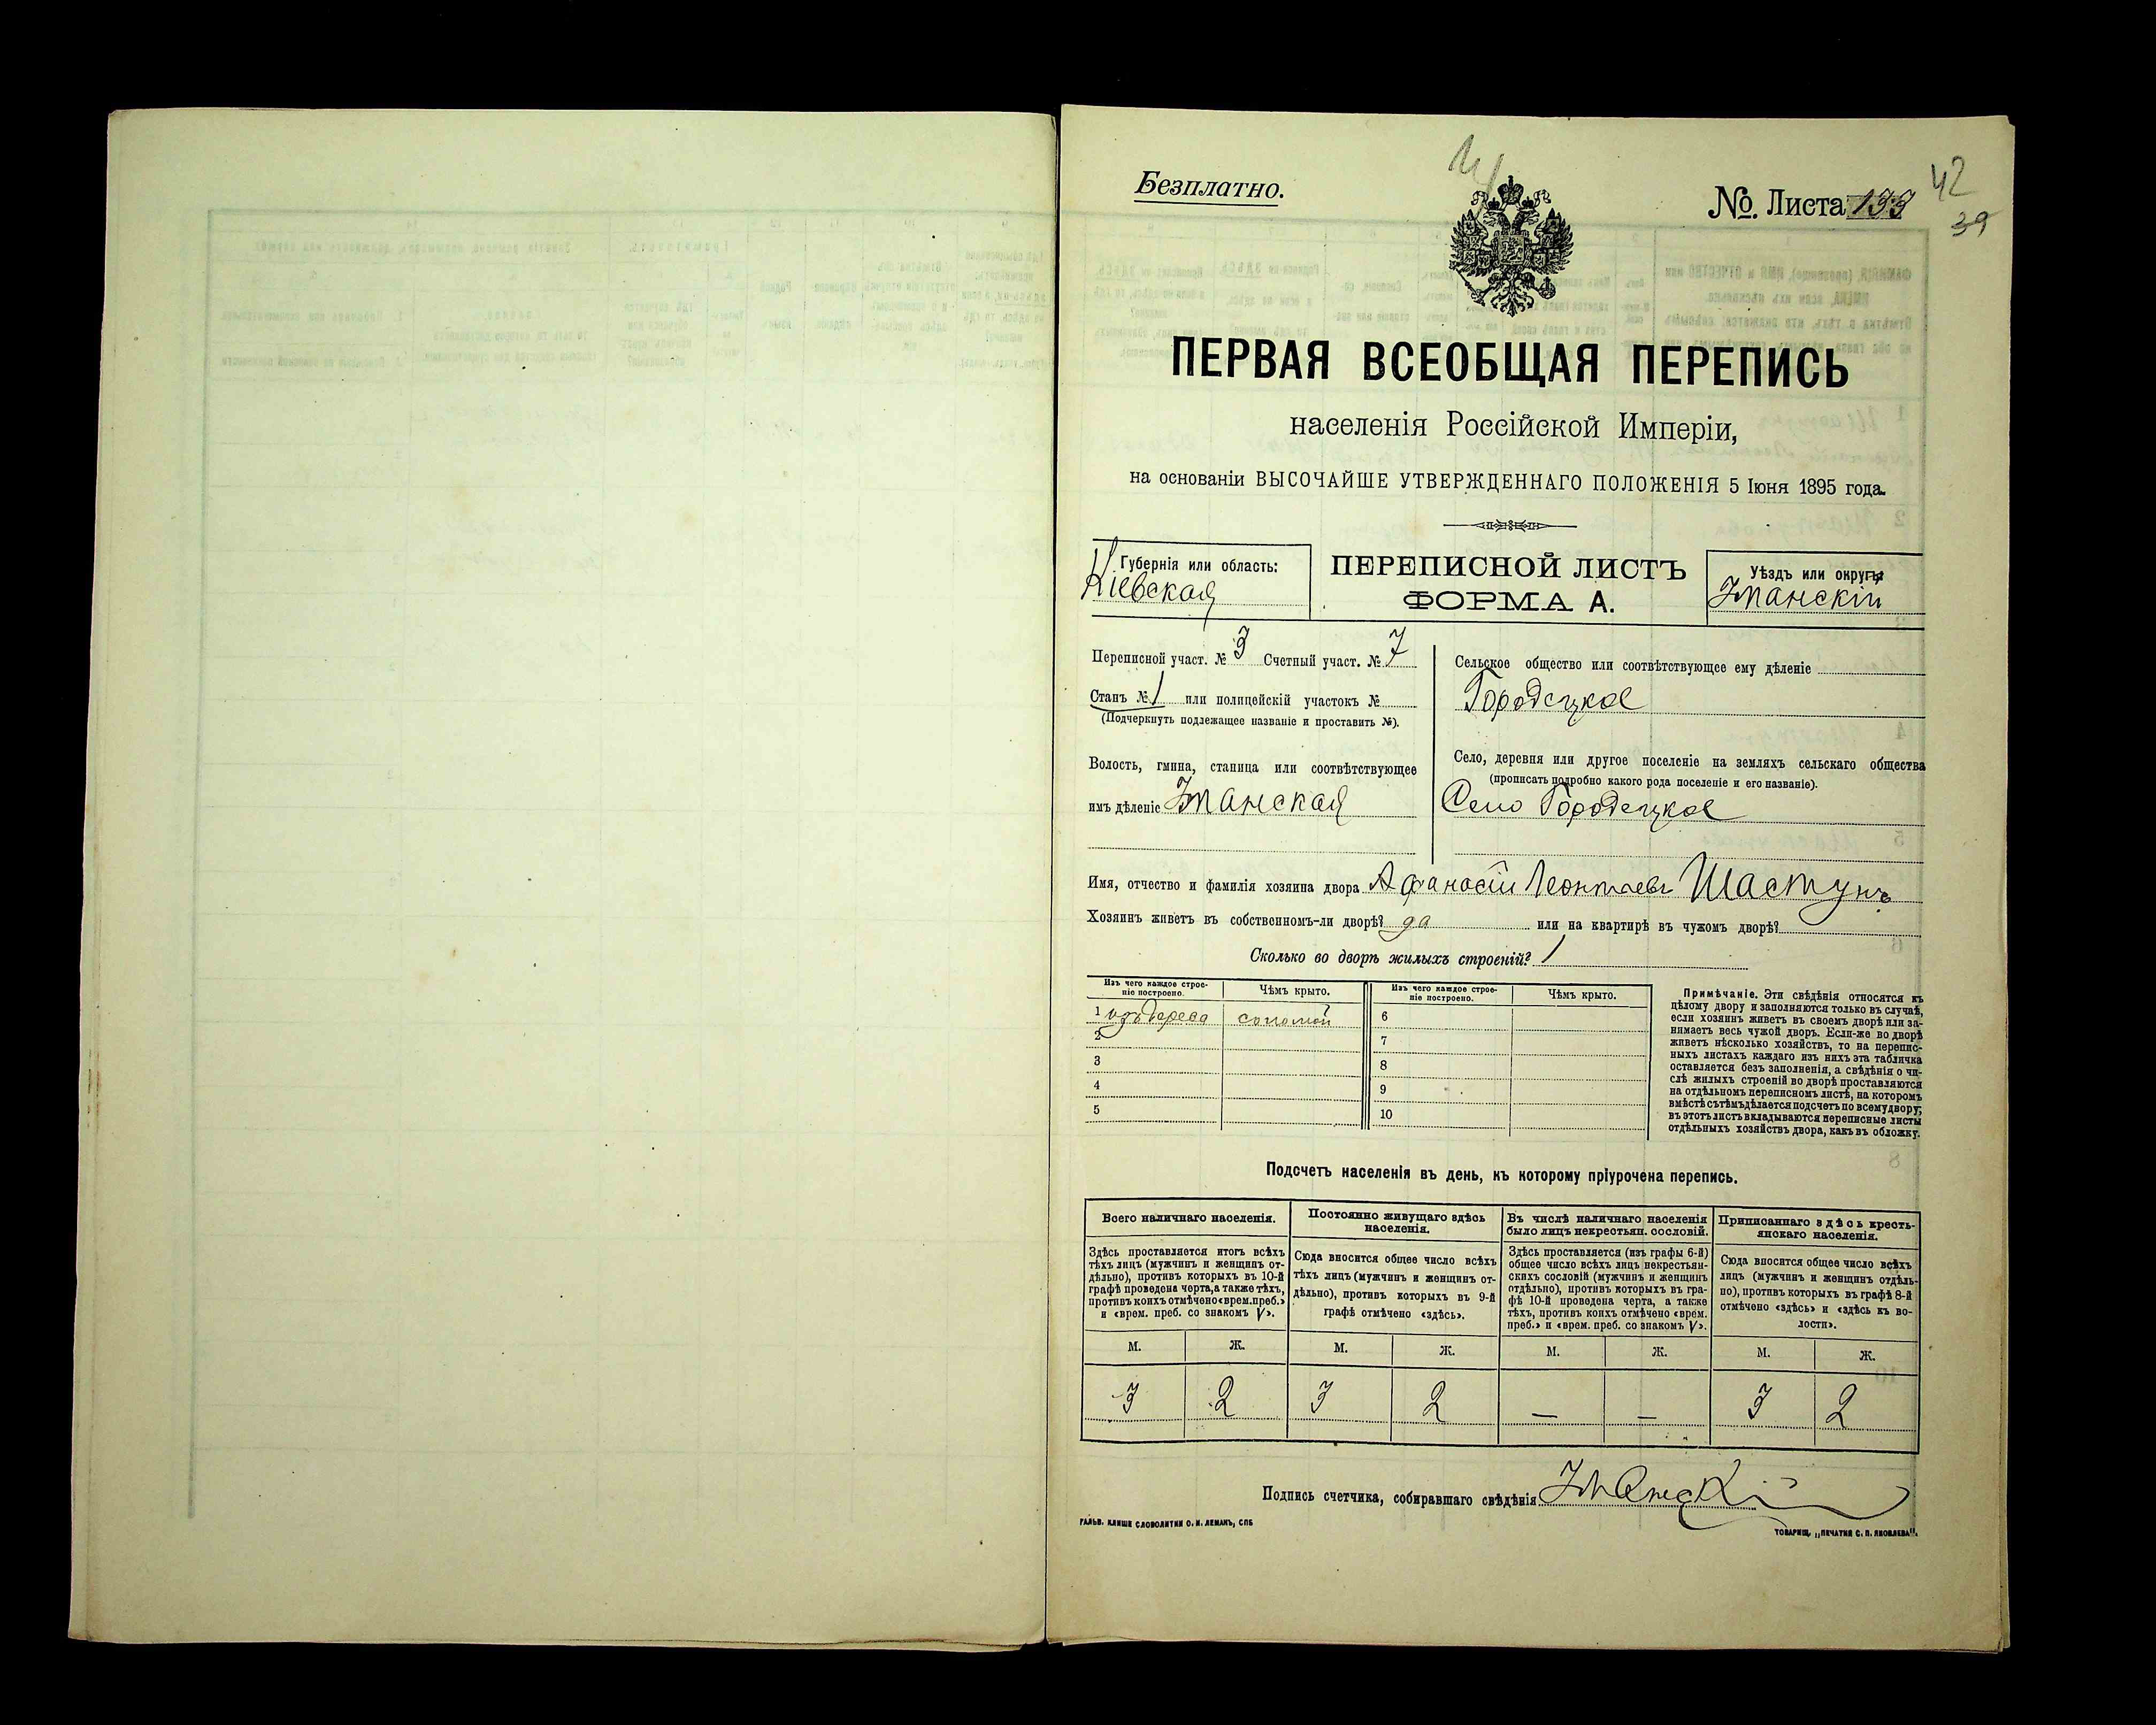 Безплатно.
№. Листа 133
42
39
ПЕРВАЯ ВСЕОБЩАЯ ПЕРЕПИСЬ
населенія Россійской Имперіи,
на основаніи ВЫСОЧАЙШЕ УТВЕРЖДЕННАГО ПОЛОЖЕНІЯ 5 Іюня 1895 года.
Губернія или область:
Кіевская
ПЕРЕПИСНОЙ ЛИСТЪ
ФОРМА А.
Уѣздъ или округъ
Уманскій
Переписной участ. № 3 Счетный участ. № 7
Станъ № 1 или полицейскій участокъ №
(Подчеркнуть подлежащее названіе и проставить №).
Волость, гмина, станица или соотвѣтствующее
имъ дѣленіе Уманская
Сельское общество или соотвѣтствующее ему дѣленіе
Городецкое
Село, деревня или другое поселеніе на земляхъ сельскаго общества
(прописать подробно какого рода поселеніе и его названіе).
Село Городецкое
Имя, отчество и фамилія хозяина двора Афанасій Леонтіевъ Шастунъ
Хозяинъ живетъ въ собственномъ-ли дворѣ? да или на квартирѣ въ чужомъ дворѣ?
Сколько во дворѣ жилыхъ строеній? 1
Изъ чего каждое строе-
ніе построено.
Чѣмъ крыто.
Изъ чего каждое строе-
ніе построено.
Чѣмъ крыто.
1 изъ дерева соломой
2
3
4
5
6
7
8
9
10
Примѣчаніе. Эти свѣдѣнія относятся къ
цѣлому двору и заполняются только въ случаѣ,
если хозяинъ живетъ въ своемъ дворѣ или за-
нимаетъ весь чужой дворъ. Если-же во дворѣ
живетъ нѣсколько хозяйствъ, то на перепис-
ныхъ листахъ каждаго изъ нихъ эта табличка
оставляется безъ заполненія, а свѣдѣнія о чи-
слѣ жилыхъ строеній во дворѣ проставляются
на отдѣльномъ переписномъ листѣ, на которомъ
вмѣстѣ съ тѣмъ дѣлается подсчетъ по всему двору;
въ этотъ листъ вкладываются переписные листы
отдѣльныхъ хозяйствъ двора, какъ въ обложку.
Подсчетъ населенія въ день, къ которому пріурочена перепись.
Всего наличнаго населенія.
Здѣсь проставляется итогъ всѣхъ
тѣхъ лицъ (мужчинъ и женщинъ от-
дѣльно), противъ которыхъ въ 10-й
графѣ проведена черта, а также тѣхъ,
противъ коихъ отмѣчено «врем. преб.»
и «врем. преб. со знакомъ V».
Постоянно живущаго здѣсь
населенія.
Сюда вносится общее число всѣхъ
тѣхъ лицъ (мужчинъ и женщинъ от-
дѣльно), противъ которыхъ въ 9-й
графѣ отмѣчено «здѣсь».
Въ числѣ наличнаго населенія
было лицъ некрестьян. сословій.
Здѣсь проставляется (изъ графы 6-й)
общее число всѣхъ лицъ некрестьян-
скихъ сословій (мужчинъ и женщинъ
отдѣльно), противъ которыхъ въ гра-
фѣ 10-й проведена черта, а также
тѣхъ, противъ коихъ отмѣчено «врем.
преб.» и «врем. преб. со знакомъ V».
Приписаннаго здѣсь кресть-
янскаго населенія.
Сюда вносится общее число всѣхъ
лицъ (мужчинъ и женщинъ отдѣль-
но), противъ которыхъ въ графѣ 8-й
отмѣчено «здѣсь» и «здѣсь къ во-
лости».
М. Ж. М. Ж. М. Ж. М. Ж.
3 2 3 2 — — 3 2
Подпись счетчика, собиравшаго свѣдѣнія
ГАЛЬВ. КЛИШЕ СЛОВОЛИТНИ О. И. ЛЕМАНЪ, СПБ
ТОВАРИЩ. „ПЕЧАТНЯ С. П. ЯКОВЛЕВА".